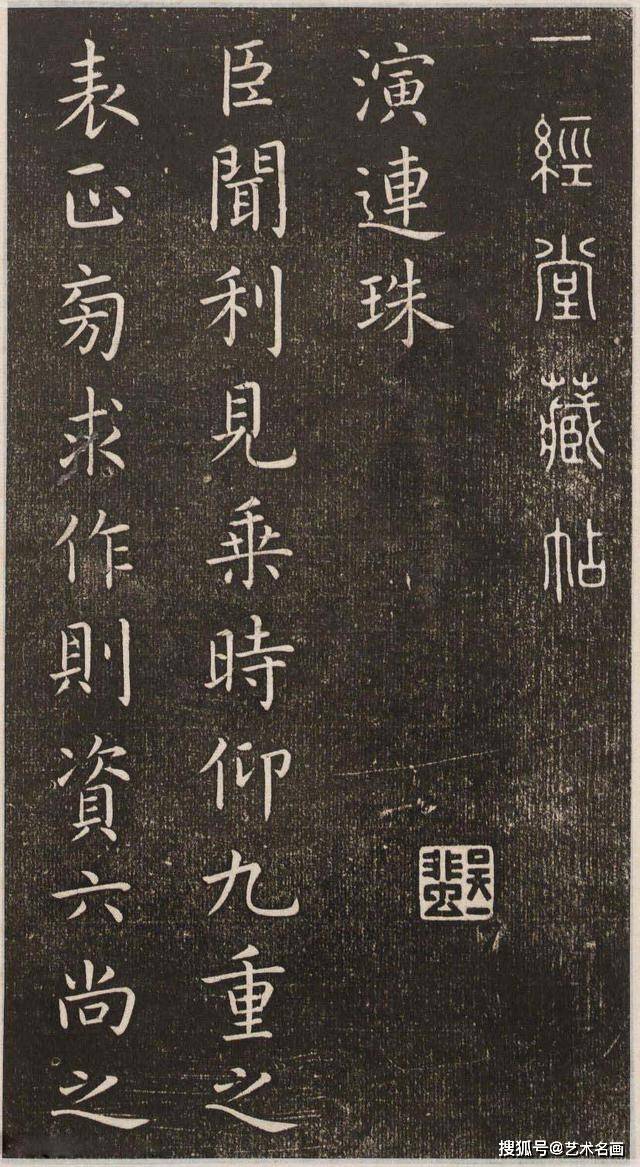 一經堂藏帖
演連珠
臣聞利見乗時仰九重之
表正旁求作則資六尚之
吴一蜚
搜狐号@艺术名画